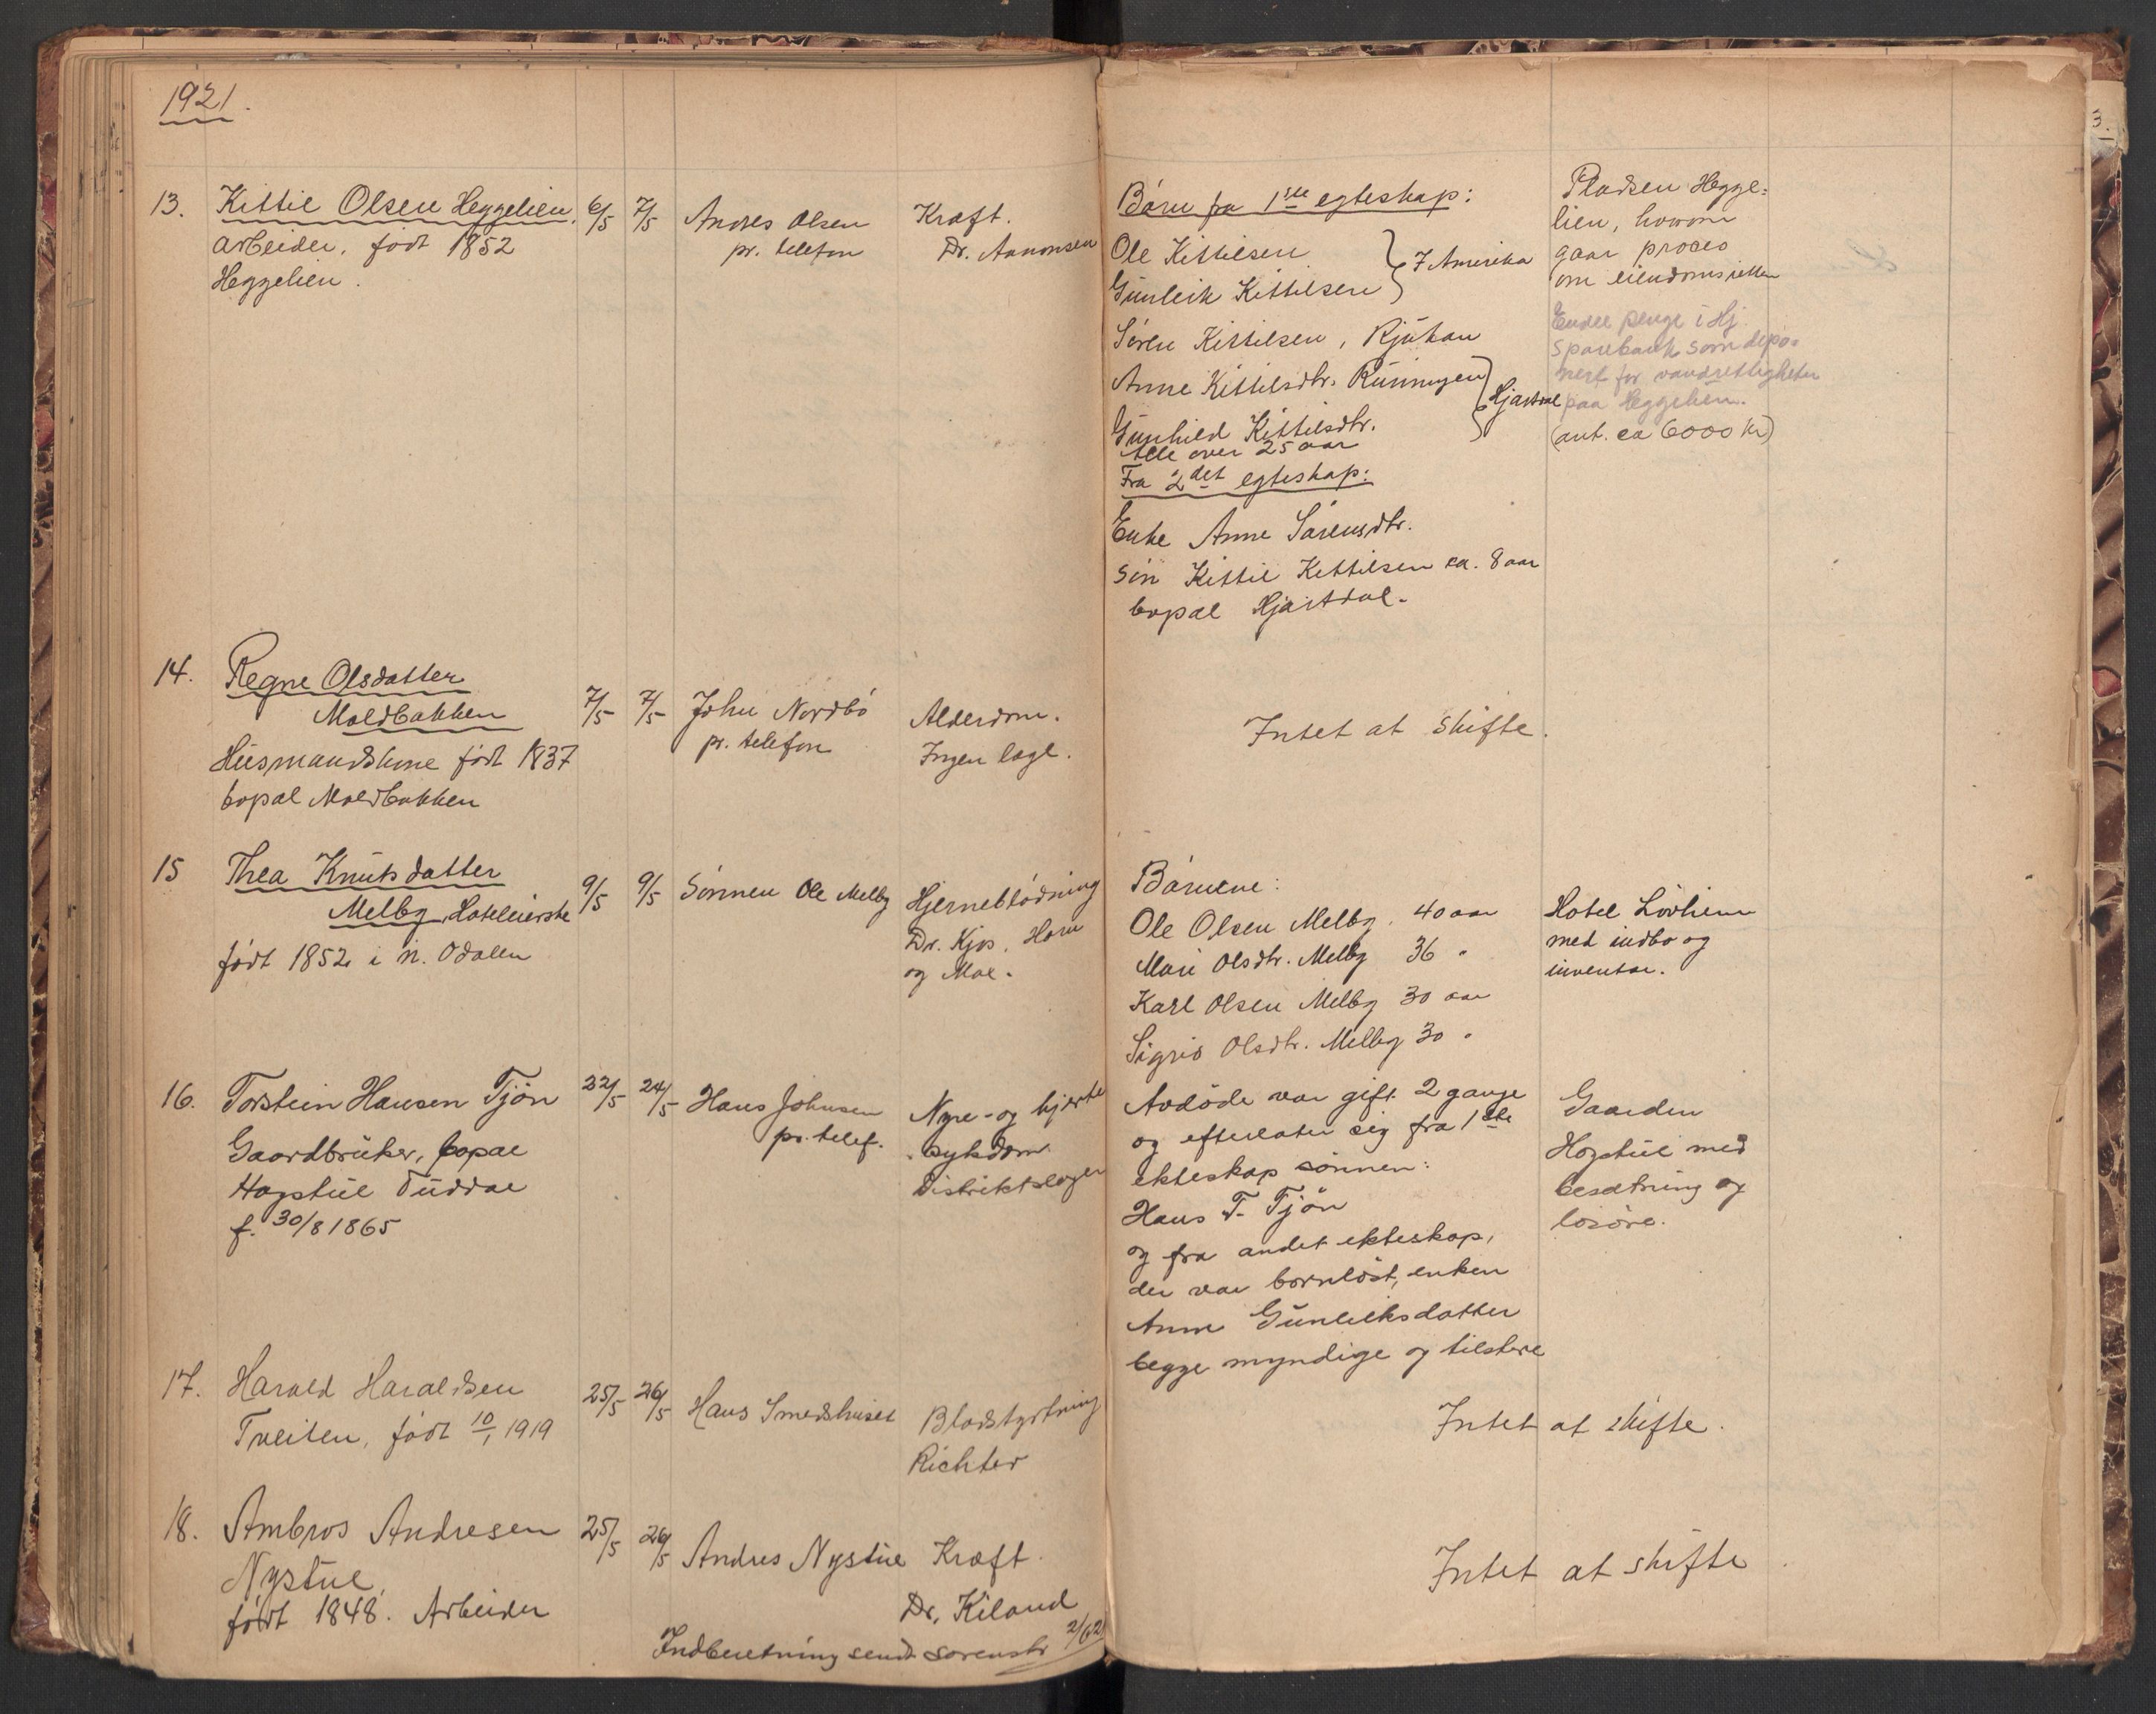 1921.
13. Kittil Olsen Heggelien, 6/5 7/5 Andres Olsen Kræft.
arbeider, født 1852 pr. telefon Dr. Aanonsen
Heggelien.
Børn fra 1ste egteskap:
Ole Kittilsen
Gunleik Kittilsen } I Amerika
Søren Kittilsen, Rjukan
Anne Kittilsdtr. Runningen
Gunhild Kittilsdtr. } Hjartdal
Alle over 25 aar
Fra 2det egteskap:
Enke Anne Sørensdtr.
Søn Kittil Kittilsen ca. 8 aar
bopæl Hjartdal.
Pladsen Hegge-
lien, hvorom
gaar proces
om eiendomsretten
Endel penge i Hj.
Sparebank som depo-
nert for vandrettigheter
paa Heggelien.
(ant. ca 6000 kr)
14. Regne Olsdatter
Moldbakken 7/5 7/5 John Nordbø Alderdom.
Husmandskone født 1837 pr. telefon Ingen læge.
bopæl Moldbakken
Intet at skifte.
15 Thea Knutsdatter
Melby, Hoteleierske 9/5 9/5 Sønnen Ole Melby Hjerneblødning
født 1852 i n. Odalen Dr. Kjos, Horn
og Moe.
Børnene:
Ole Olsen Melby. 40 aar
Mari Olsdtr. Melby 36 "
Karl Olsen Melby 30 aar
Sigrid Olsdtr. Melby 30 "
Hotel Løvheim
med indbo og
inventar.
16. Torstein Hansen Tjøn 22/5 24/5 Hans Johnsen Nyre- og hjerte
Gaardbruker, bopæl pr. telef. sykdom
Hogstul Tuddal Distriktslægen
f. 30/8 1865
Avdøde var gift 2 gange
og efterlater sig fra 1ste
ekteskap sønnen:
Hans T. Tjøn
og fra andet ekteskap,
der var barnløst, enken
Anne Gunleiksdatter
begge myndige og tilstede
Gaarden
Hogstul med
besætning og
løsøre.
17. Harald Haraldsen
Tveiten, født 10/1 1919 25/5 26/5 Hans Smedshuset Blodstyrtning
Richter
Intet at skifte.
18. Ambros Andresen 25/5 26/5 Andres Nystue Kræft.
Nystue,
født 1848. Arbeider Dr. Kiland
Intet at skifte
Indberetning sendt sorenskr 2/6 21